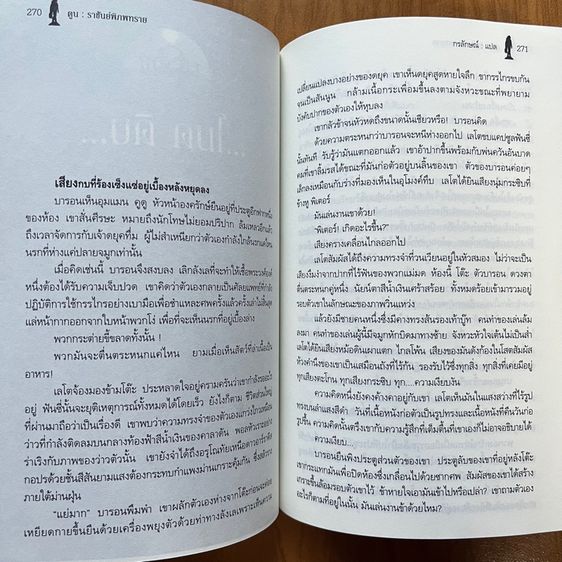 270
ดูน : ราชันย์พิภพทราย
เสียงกบที่ร้องเซ็งแซ่อยู่เบื้องหลังหยุดลง
บารอนเห็นอุมแมน คูดู หัวหน้าองครักษ์ยืนอยู่ที่ประตูอีกฟากหนึ่ง
ของห้อง เขาสั่นศีรษะ หมายถึงนักโทษไม่ยอมปริปาก
ถึงเวลาจัดการกับเจ้าดยุคที่ม
นรกที่ห่างแค่ปลายจมูกเท่านั้น
เมื่อคิดเช่นนี้ บารอนจึงสงบลง เลิกลังเลที่จะทำให้เชื้อพระวงศ์ท่าน
หนึ่งต้องได้รับความเจ็บปวด เขาคิดว่าตัวเองกลายเป็นศัลยแพทย์ที่กำลัง
ปฏิบัติการใช้กรรไกรอย่างเบามือเพื่อชำแหละศพครั้งแล้วครั้งเล่าไม่สิ้นสุด
แล่หน้ากากออกจากใบหน้าพวกโง่ เพื่อที่จะเห็นนรกที่อยู่เบื้องล่าง
พวกกระต่ายขี้ขลาดทั้งนั้น !
พวกมันจะตื่นตระหนกแค่ไหน ยามเมื่อเห็นสัตว์ที่ล่าเนื้อเป็น
อาหาร!
เลโตจ้องมองข้ามโต๊ะ ประหลาดใจอยู่ครามครันว่าเขากำลังรออะไร
อยู่ ฟันซี่นั้นจะยุติเหตุการณ์ทั้งหมดได้โดยเร็ว ยังไงก็ตาม ชีวิตส่วนใหญ่
ที่ผ่านมาถือว่าเป็นเรื่องดี เขาพบว่าความทรงจำของตัวเอง
ว่าวที่กำลังติดลมบนกลางท้องฟ้าสีน้ำเงินของคาลาดัน พอลหัวเราะอย่าง
ร่าเริงกับภาพของว่าวตัวนั้น เขายังจำได้ถึงอรุโณทัยเหนือดาวอาร์ราคิส
กอปรด้วยชั้นสีสันยามแสงต้องกระทบกำแพงม่านเกราะคุ้มกัน ซึ่งสลัวราง
ภายใต้ม่านฝุ่น
"แย่มาก" บารอนพึมพำ เขาผลักตัวเองห่างจากโต๊ะก่อนจะค่อยๆ
เหยียดกายขึ้นยืนด้วยเครื่องพยุงตัวด้วยท่าทางลังเลเพราะเห็นความ
กรลักษณ์ : แปล
271
เปลี่ยนแปลงบางอย่างของดยุค เขาเห็นดยุคสูดหายใจลึก ขากรรไกรขบกัน
จนเป็นสันนูน กล้ามเนื้อกระเพื่อมขึ้นลงตามจังหวะขณะที่พยายาม
บังคับปากของตัวเองให้หุบลง
เขากลัวข้าจนหัวหดถึงขนาดนั้นเชียวหรือ! บารอนคิด
ด้วยความตระหนกว่าบารอนจะหนีห่างออกไป เลโตขบแคปซูลฟันซี่
นั้นทันที รับรู้ว่ามันแตกออกแล้ว เขาอ้าปากขึ้นพร้อมกับพ่นควันอันบาด
คมที่เขาลิ้มรสได้ขณะที่มันก่อตัวอยู่บนลิ้นของเขา ตัวของบารอนค่อยๆ
เล็กลงเหมือนกับร่างที่มองเห็นในอุโมงค์ตีบ เลโตได้ยินเสียงนุ่มกระซิบที่
ข้างหู พิเตอร์!
มันเล่นงานเขาด้วย!
"พิเตอร์! เกิดอะไรขึ้น?"
เสียงครางเคลื่อนไกลออกไป
เลโตสัมผัสได้ถึงความทรงจำที่วนเวียนอยู่ในหัวสมอง ไม่ว่าจะเป็น
เสียงงึมงำจากปากที่ไร้ฟันของพวกแม่มด ห้องนี้ โต๊ะ ตัวบารอน ดวงตา
ตื่นตระหนกคู่หนึ่ง นัยน์ตาสีน้ำเงินเศร้าสร้อย ทั้งหมดย้อยเข้ามารวมอยู่
รอบตัวเขาในลักษณะของภาพวิ่นแหว่ง
แล้วยังมีชายคนหนึ่งซึ่งมีคางทรงส้นรองเท้าบู๊ท คนทำของเล่นล้ม
ลง คนทำของเล่นผู้นี้มีจมูกหักบิดมาทางซ้าย จังหวะหัวใจเต้นไม่เป็นส่ำ
เลโตได้ยินเสียงหม้อดินเผาแตก ไกลโพ้น เสียงของมันดังก้องในโสตสัมผัส
ห้วงคำนึงของเขาเป็นเสมือนถังที่ไร้ก้น รองรับไว้ซึ่งทุกสิ่ง ทุกสิ่งที่เคยมีอยู่
ทุกเสียงตะโกน ทุกเสียงกระซิบ ทุก....ความเงียบงัน
ความคิดหนึ่งยังคงค้างคาอยู่กับเขา เลโตเห็นมันในแสงสว่างที่ไร้รูป
ทรงบนลำแสงสีดำ วันที่เนื้อหนังก่อตัวเป็นรูปทรงและเนื้อหนังที่คืนวันก่อ
รูปขึ้น ความคิดนั้นตรึงเขากับความรู้สึกที่เต็มตื้นที่เขาเองก็ไม่อาจอธิบายได้
ความเงียบ...
บารอนยืนพิงประตูส่วนตัวของเขา ประตูลับของเขาที่อยู่หลังโต๊ะ
เขากระแทกมันเพื่อปิดห้องซึ่งเกลื่อนไปด้วยซากศพ สัมผัสของเขาได้สร้าง
เกราะขึ้นล้อมรอบตัวเขาไว้ ข้าหายใจเอามันเข้าไปหรือเปล่า? เขาถามตัวเอง
อะไรก็ตามที่อยู่ในนั้น มันเล่นงานข้าด้วยไหม?